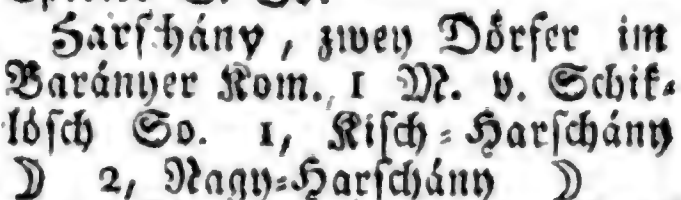 Harſchány, zwey Dörfer im
Barányer Kom. 1 M. v. Schik-
lóſch So. 1, Kiſch-Harſchány
☽ 2, Nagy-Harſchány ☽